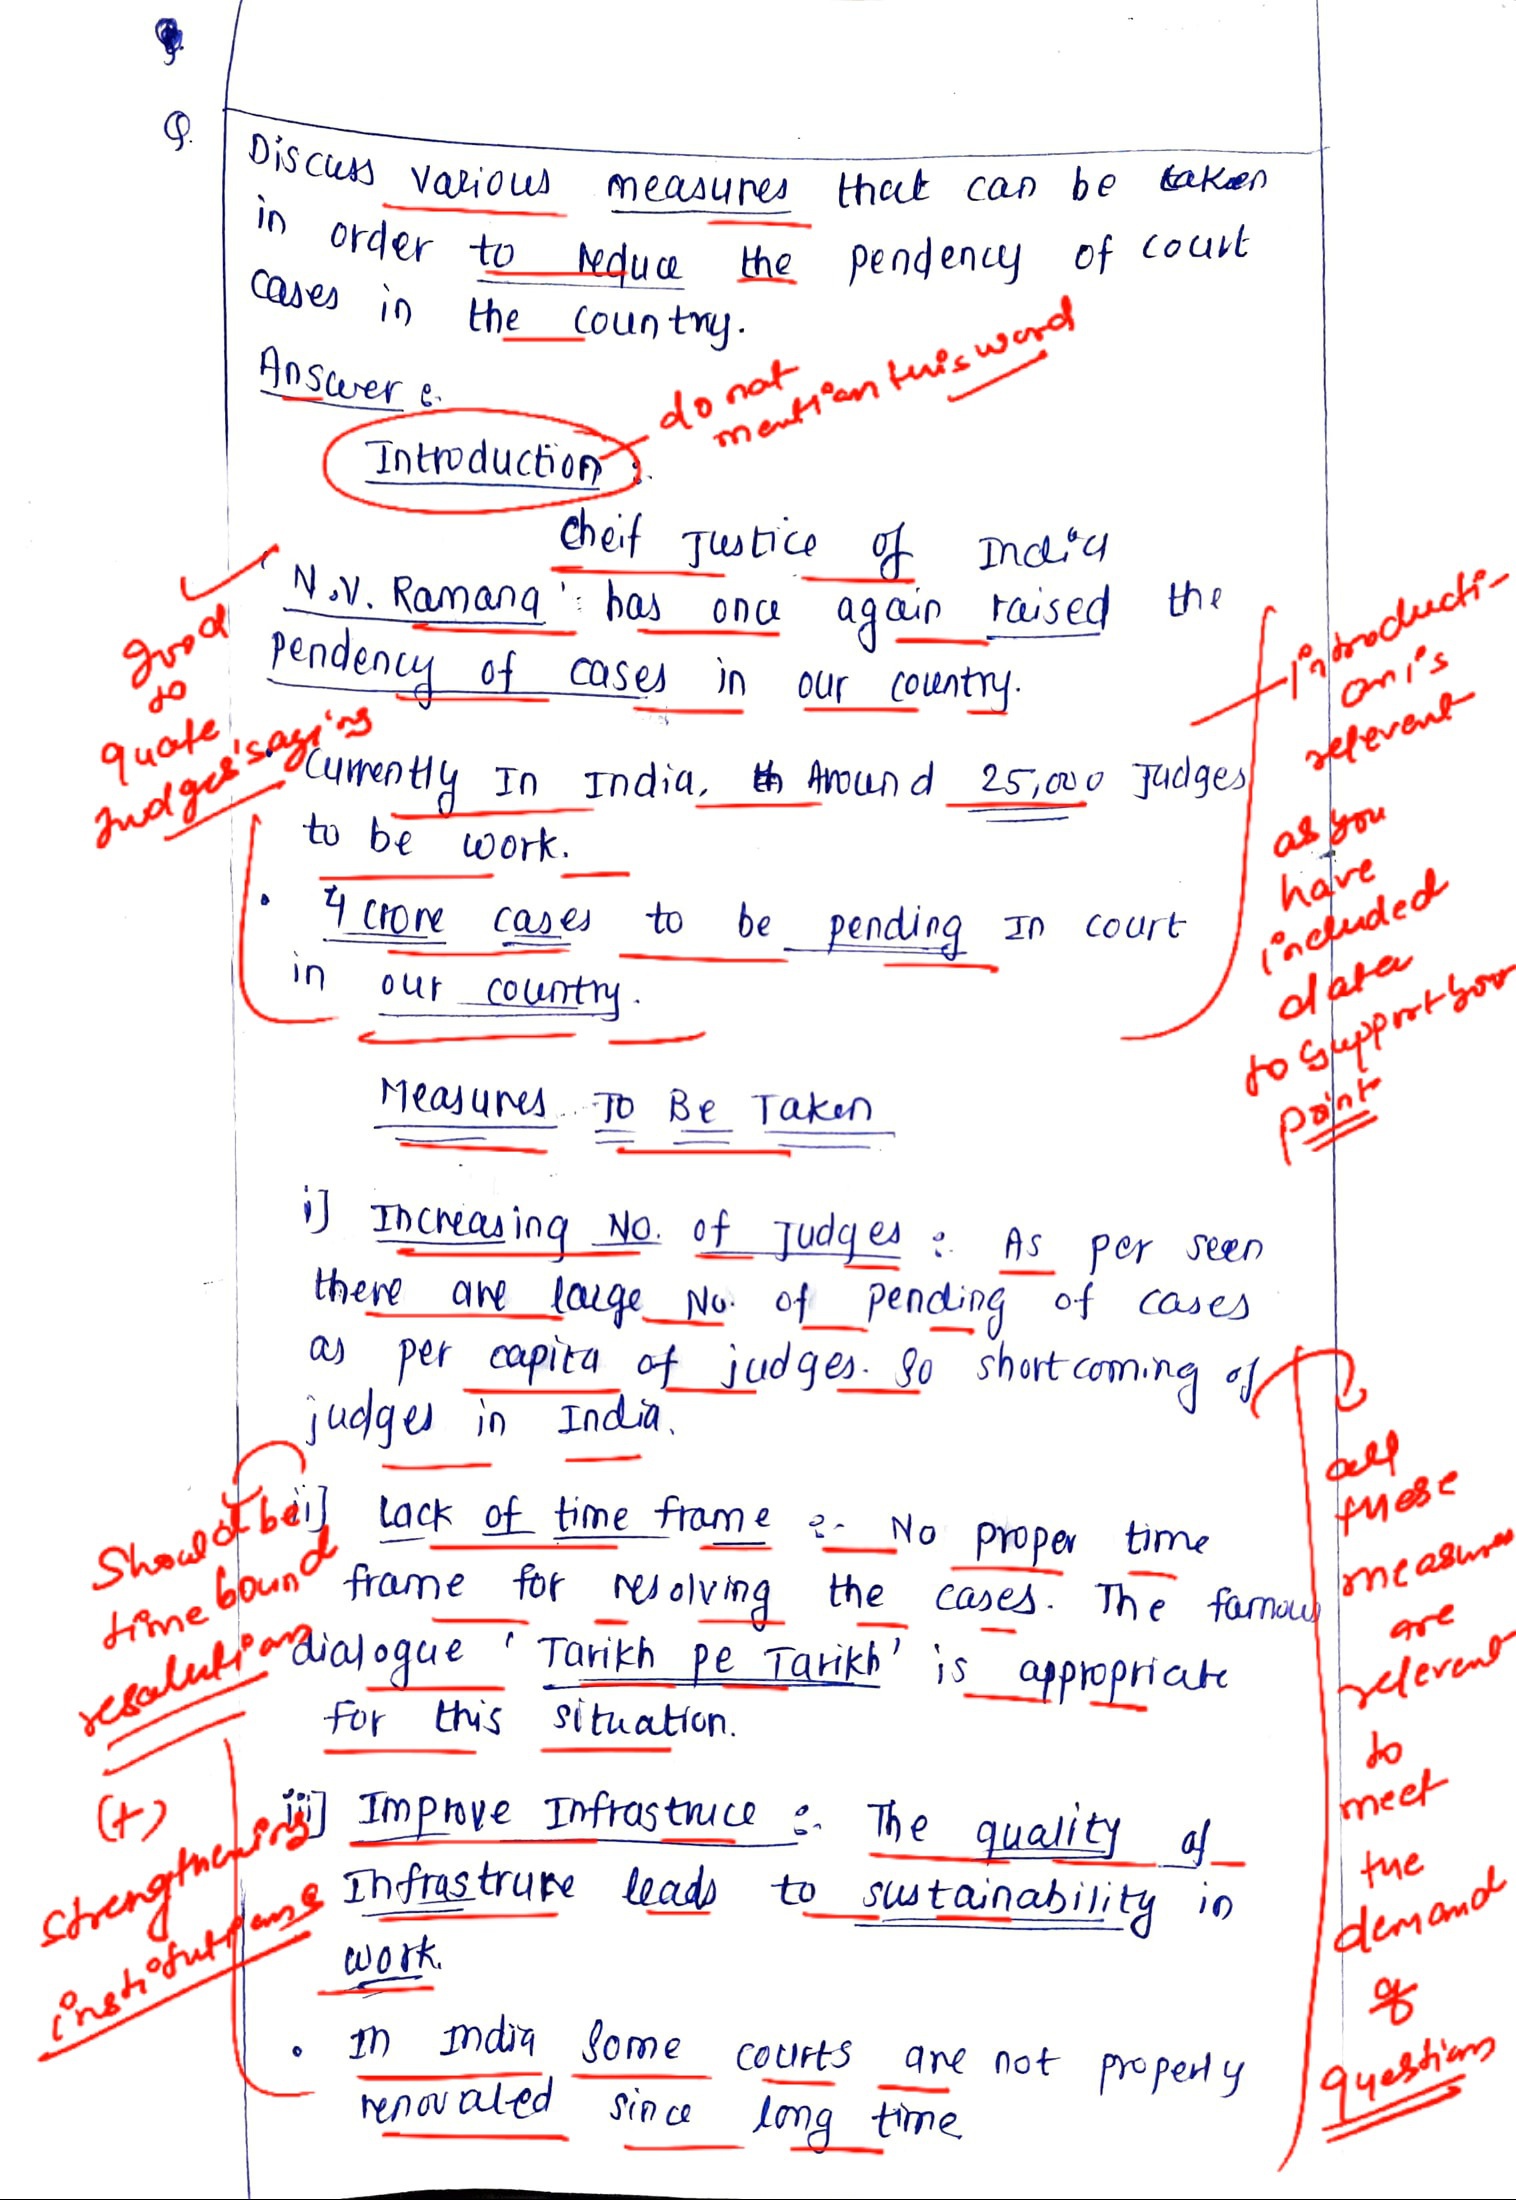 Q.
Discuss various measures that can be taken
in order to reduce the pendency of court
cases in the country.
Answer :-
do not
mention this word
Introduction :-
Cheif Justice of India
N.V. Ramana has once again raised the
pendency of cases in our country.
good
to
quote
Judges' sayings
introducti-
on is
relevent
as you
have
included
data
to support your
point
• Currently In India, Around 25,000 Judges
to be work.
• 4 crore cases to be pending In court
in our country.
Measures To Be Taken
i] Increasing No. of Judges :- As per seen
there are large No. of pending of cases
as per capita of judges. So shortcoming of
judges in India.
ii] Lack of time frame :- No proper time
frame for resolving the cases. The famous
dialogue 'Tarikh pe Tarikh' is appropriate
for this situation.
Should be
time bound
resolution
(+)
strengthening
institutions
iii] Improve Infrastruce :- The quality of
Infrastrure leads to sustainability in
work.
• In India Some courts are not properly
renovated since long time
all
these
measures
are
relevent
to
meet
the
demand
of
question